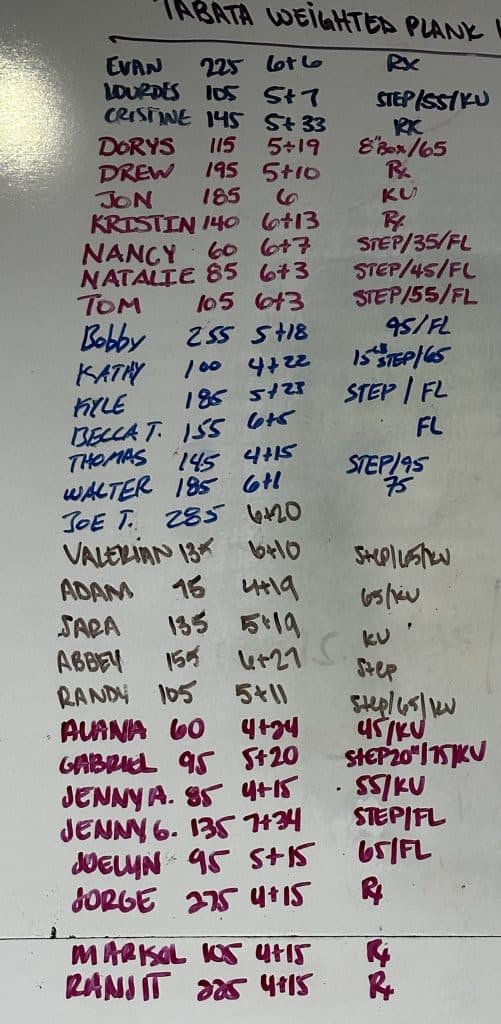 TABATA WEIGHTED PLANK
EVAN 225 6+6 RX
LOURDES 105 5+7 STEP/55/KU
CRISTINE 145 5+33 RX
DORYS 115 5+19 8"Box/65
DREW 195 5+10 Rx
JON 185 6 KU
KRISTIN 140 6+13 Rx
NANCY 60 6+7 STEP/35/FL
NATALIE 85 6+3 STEP/45/FL
TOM 105 6+3 STEP/55/FL
Bobby 255 5+18 95/FL
KATHY 100 4+22 STEP/65
KYLE 185 5+23 STEP/FL
BECCA T. 155 6+5 FL
THOMAS 145 4+15 STEP/95
WALTER 185 6+1 75
JOE T. 285 6+20
VALERIAN 135 6+10 Step/65/KU
ADAM 95 4+19 65/KU
SARA 135 5+19 KU
ABBEY 155 6+27 Step
RANDY 105 5+11 Step/65/KU
ALANIA 60 4+24 45/KU
GABRIEL 95 5+20 STEP20"/75/KU
JENNY A. 85 4+15 55/KU
JENNY G. 135 7+34 STEP/FL
JOELYN 95 5+15 65/FL
JORGE 275 4+15 Rx
MARISOL 105 4+15 Rx
RANJIT 225 4+15 Rx